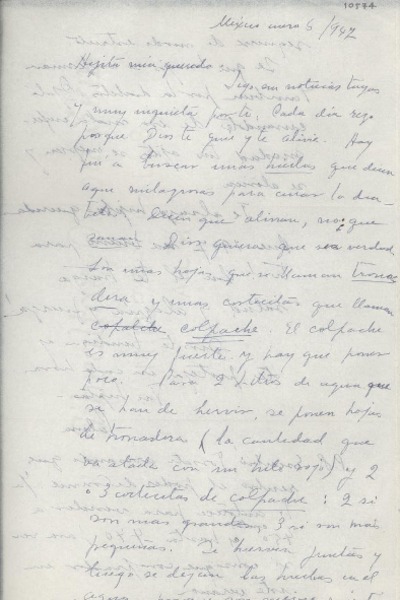 10574
México enero 6/1947
Hijita mía querida
Sigo sin noticias tuyas
y muy inquieta por ti. Cada día rezo
porque Dios te guíe y te alivie. Hoy
fui a buscar unas hierbas que dicen
aquí milagrosas para curar la dia-
betes. Dicen que alivian, no que
sanan. Dios quiera que sea verdad.
Son unas hojas que se llaman trona-
dora y unas cortecitas que llaman
copalche colpache. El colpache
es muy fuerte y hay que poner
poco. Para 2 litros de agua que
se han de hervir, se ponen hojas
de tronadora (la cantidad que
va atada con un hilo rojo) y 2
o 3 cortecitas de colpache: 2 si
son mas grandes, 3 si son mas
pequeñas. Se hierven juntas y
luego se dejan las hierbas en el